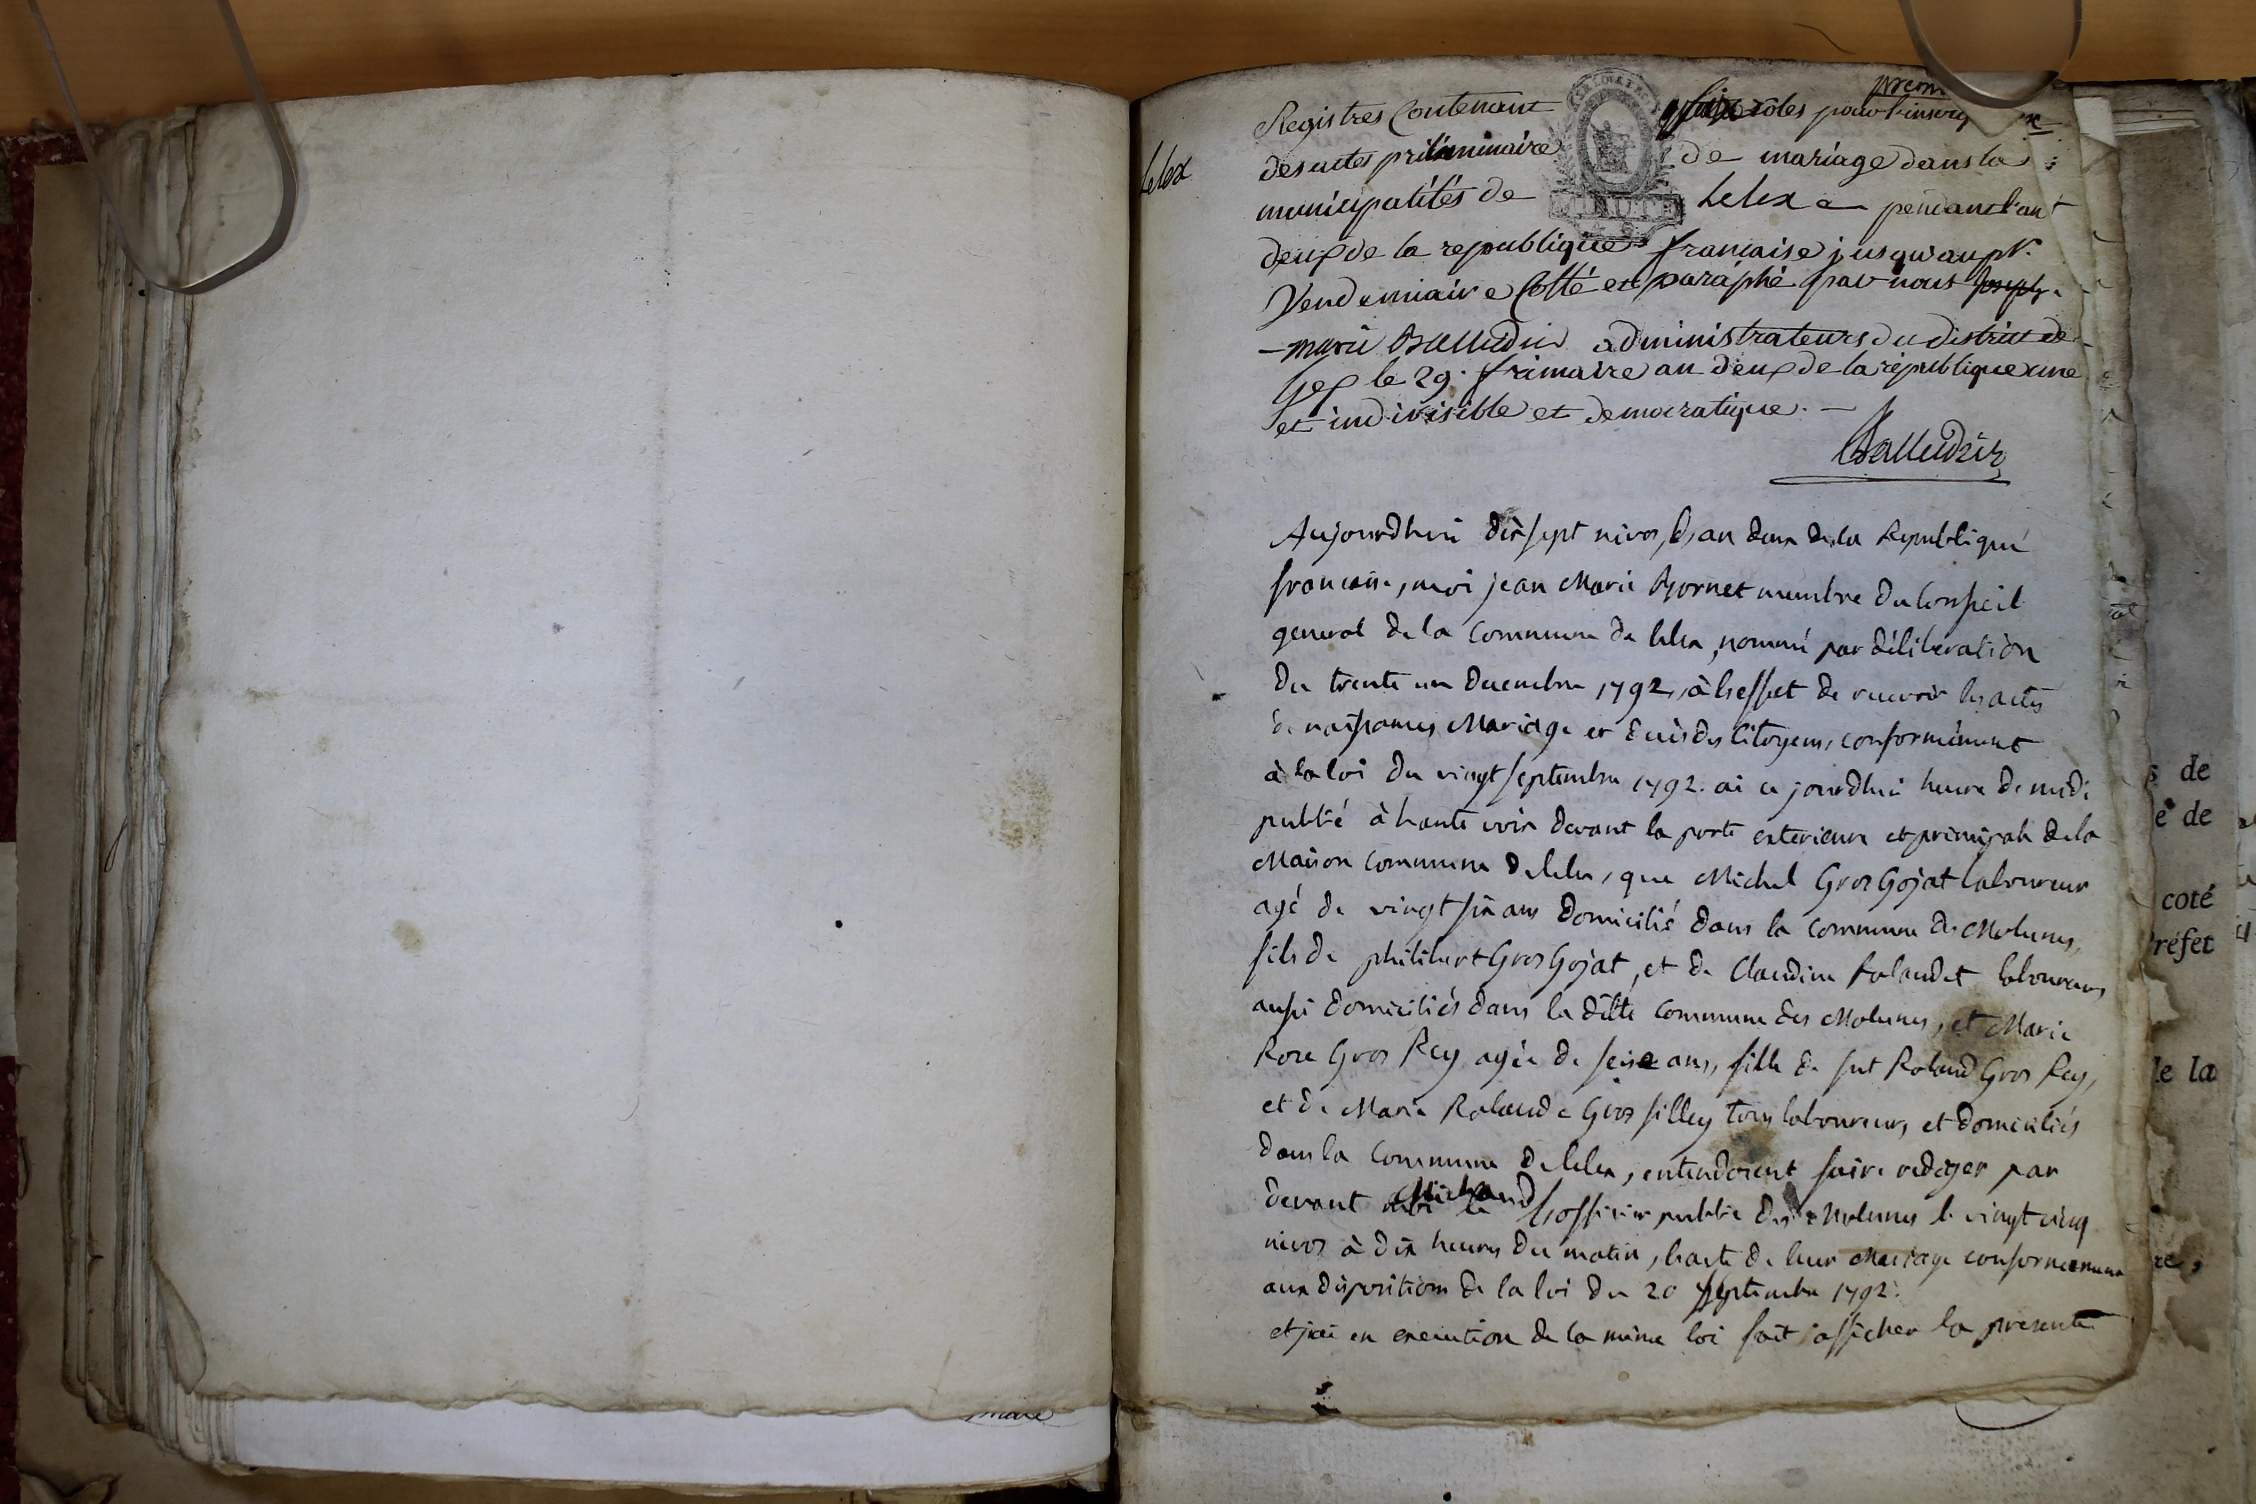 Lelex
Registres Contenant six roles pour l'inscri
des actes préliminaire de mariage dans la
municipalités de Lelex pendant l'an
deux de la republique francaise jusqu'au pr.
Vendemiaire Cotté et paraphé par nous Joseph
marie Balleidier administrateurs du district de
Gex le 29. frimaire an deux de la république une
et indivisible et democratique.
Balleidier
Aujourdhui dix sept nivos, l'an deux de la Republique
francaise, moi jean Marie Gornet membre du Conseil
general de la Commune de lelex, nommé par délibération
du trente un decembre 1792, à l'effet de recevoir les actes
de naissances Mariage et decès des Citoyens, conformément
à la loi du vingt septembre 1792. ai ce jourdhui heure de midi
publié à haute voix devant la porte exterieure et principale de la
Maison Commune de lelex, que Michel Gros Gojat laboureur
agé de vingt six ans domicilié dans la Commune des Molunes,
fils de philibert Gros Gojat, et de Claudine Rolandet laboureurs
aussi domiciliés dans la ditte Commune des Molunes, et Marie
Rose Gros Rey agée de seise ans, fille de fut Roland Gros Rey,
et de Marie Rolande Gros filley tous laboureurs et domiciliés
dans la Commune de lelex, entendoient faire rediger par
devant Michaud l'officier public des Molunes le vingt cinq
nivos à dix heures du matin, l'acte de leur Mariage conformement
aux dispositions de la loi du 20 septembre 1792.
et j'ai en execution de la même loi fait afficher la presente
de
de
coté
réfet
le la